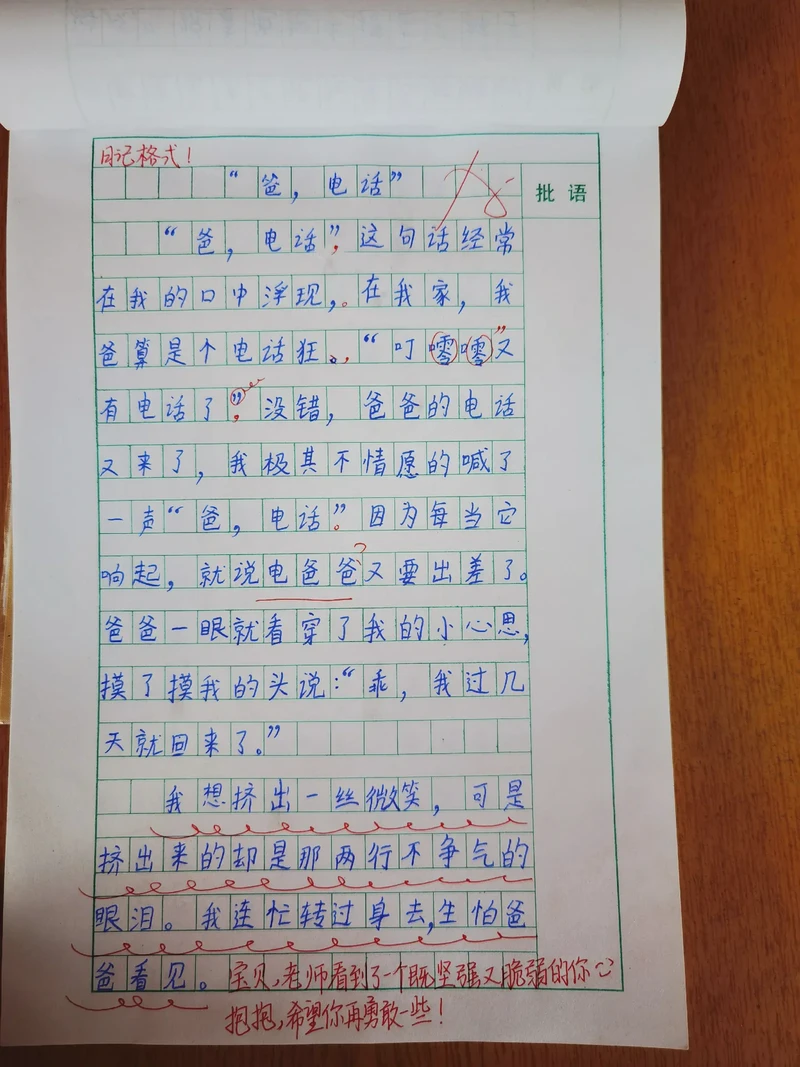 日记格式！
“爸，电话”
批语
“爸，电话”，这句话经常
在我的口中浮现，。在我家，我
爸算是个电话狂。，“叮嘤嘤”又
有电话了”，没错，爸爸的电话
又来了，我极其不情愿的喊了
一声“爸，电话”。因为每当它
响起，就说电爸爸又要出差了。
?
爸爸一眼就看穿了我的小心思，
摸了摸我的头说：“乖，我过几
天就回来了。”
我想挤出一丝微笑，可是
挤出来的却是那两行不争气的
眼泪。我连忙转过身去，生怕爸
爸看见。
宝贝，老师看到了一个既坚强又脆弱的你
抱抱，希望你再勇敢一些！